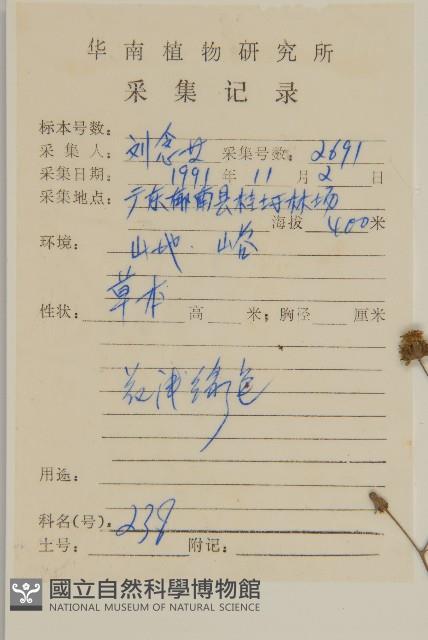 华南植物研究所
采集记录
标本号数:
采集人: 刘念 采集号数: 2691
采集日期: 1991 年 11 月 2 日
采集地点: 广东郁南县桂圩林场
海拔 400 米
环境: 山地. 山谷
性状: 草本 高 米; 胸径 厘米
花浅绿色
用途:
科名(号): 238
土号: 附记:
國立自然科學博物館
NATIONAL MUSEUM OF NATURAL SCIENCE